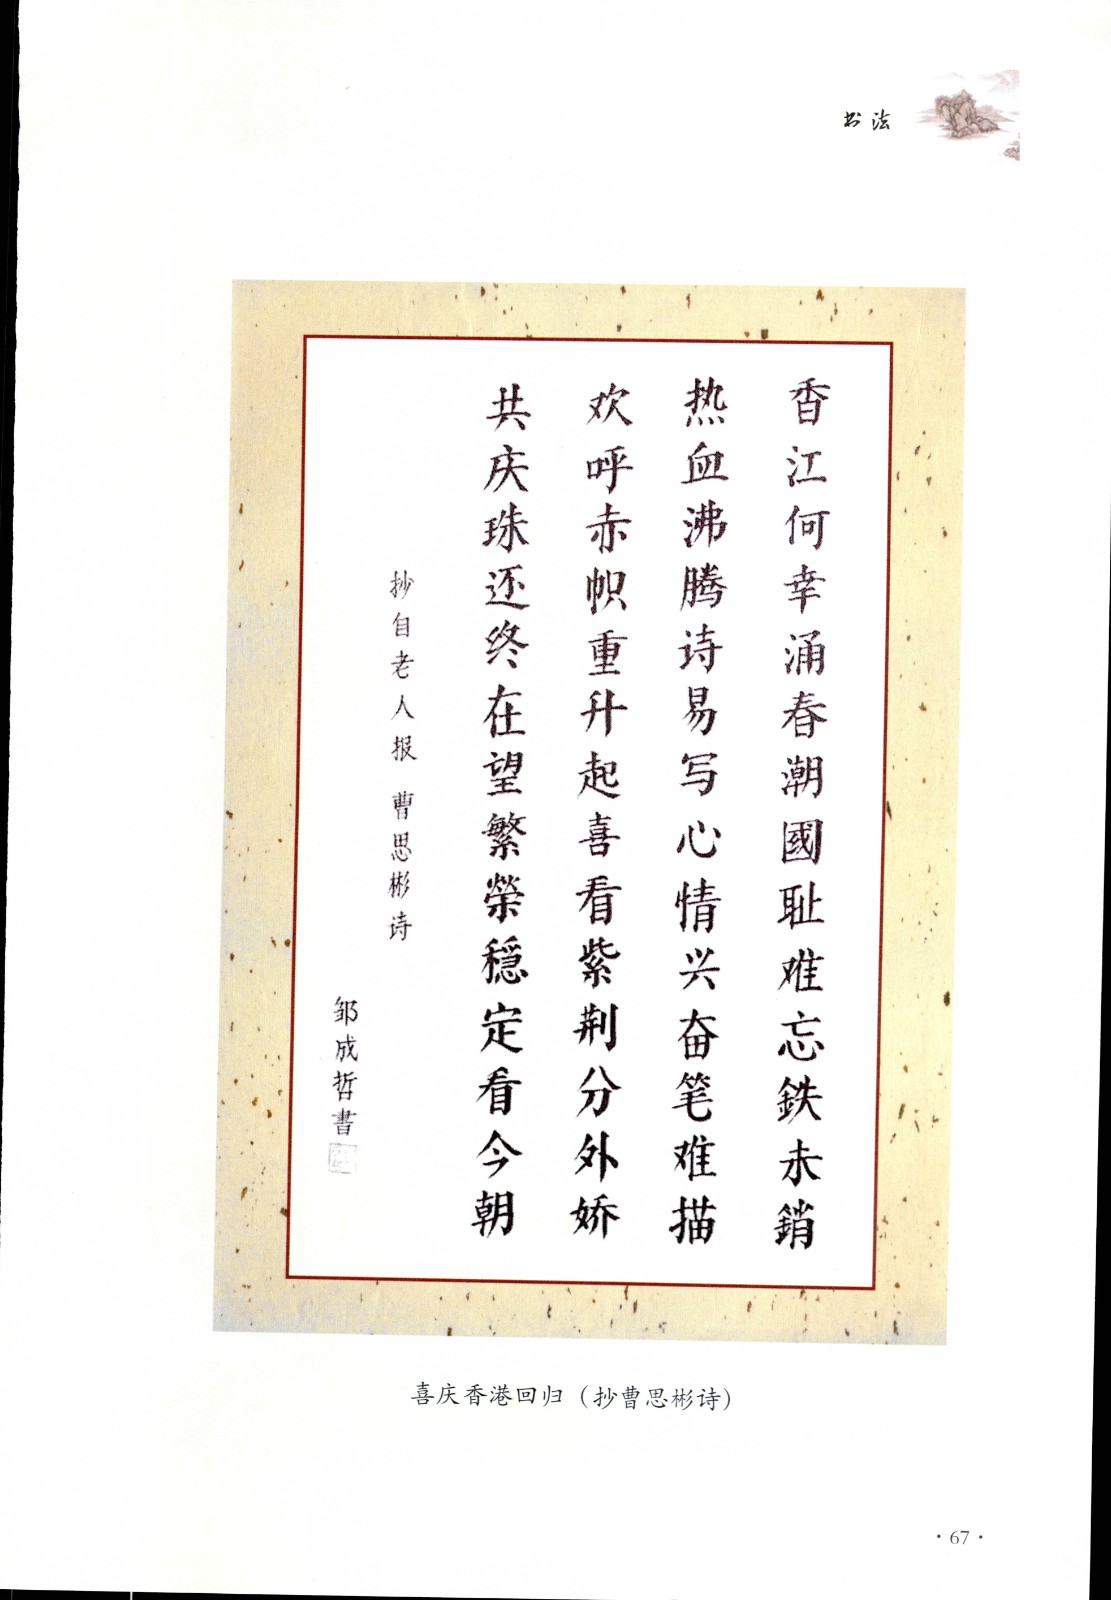 书法
香江何幸涌春潮國耻难忘鉄未銷
热血沸腾诗易写心情兴奋笔难描
欢呼赤帜重升起喜看紫荆分外娇
共庆珠还终在望繁榮穏定看今朝
抄自老人报 曹思彬诗
邹成哲書
喜庆香港回归（抄曹思彬诗）
·67·